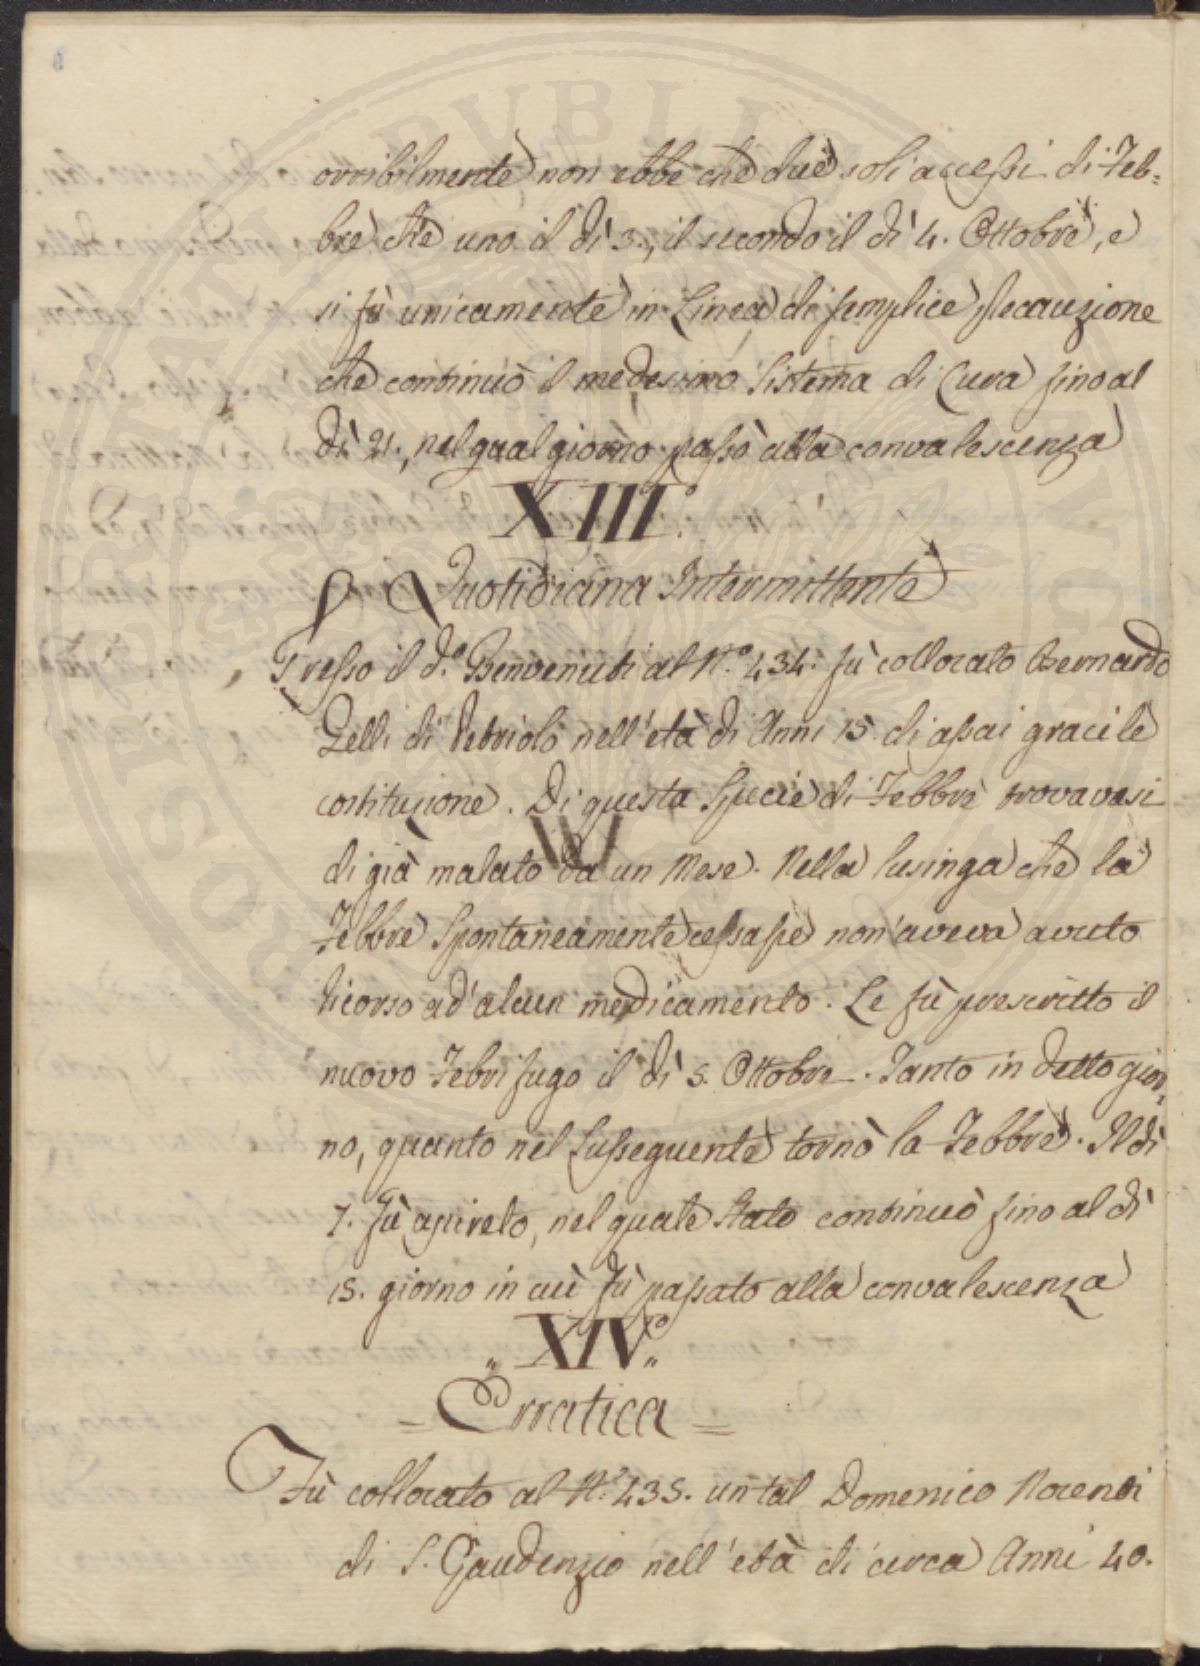 orribilmente non ebbe che due soli accessi di Feb=
bre che uno il dì 3., il secondo il dì 4. Ottobre, e
si fù unicamente in Linea di semplice precauzione
che continuò il medesimo Sistema di Cura fino al
dì 21., nel qual giorno passò alla convalescenza
XIII.°
Quotidiana Intermittente
Presso il d.° Benvenuti al N.° 434. fù collocato Bernardo
Gelli di Vebriolo nell'età di Anni 15. di assai gracile
costituzione. Di questa Specie di Febbre trovavasi
di già malato da un Mese. Nella lusinga che la
Febbre Spontaneamente cessasse non aveva avuto
ricorso ad'alcun medicamento. Le fù prescritto il
nuovo Febrifugo il dì 5. Ottobre. Tanto in detto gior,
no, quanto nel Susseguente tornò la Febbre. Il dì
7. fù apireto, nel quale Stato continuò fino al dì
15. giorno in cui fù passato alla convalescenza
„ XIV.° „
= Erratica =
Fù collocato al N.° 435. un tal Domenico Morenti
di S. Gaudenzio nell'età di circa Anni 40.